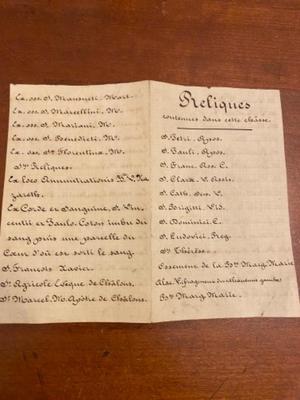 Reliques
contenues dans cette châsse.
S. Petri. Apos.
S. Pauli. Apos.
S. Franc. Ass. C.
S. Claræ. V. Assis.
S. Cath. Sen. V.
S. Brigitt. Vid.
S. Dominici. C.
S. Ludovici. Reg.
Ste Thérèse.
Ossement de la Bse Marg. Marie
Alac.
Bse Marg. Marie.
Ex. oss. S. Mansueti. Mart.
Ex. oss. S. Marcellini. M.
Ex. oss. S. Mariani. M.
Ex. oss. S. Benedicti. M.
Ex. oss. Stæ Florentinæ. M.
Stes Reliques.
Ex loco Annuntiationis B. V. Na
zareth.
Ex Corde et Sanguine, S. Vin
centii et Paulo. Coton imbu du
sang puis une parcelle du
Cœur d'où est sorti le sang.
S. François Xavier.
St Agricole Evêque de Châlons.
St Marcel. M. Apôtre de Châlons.